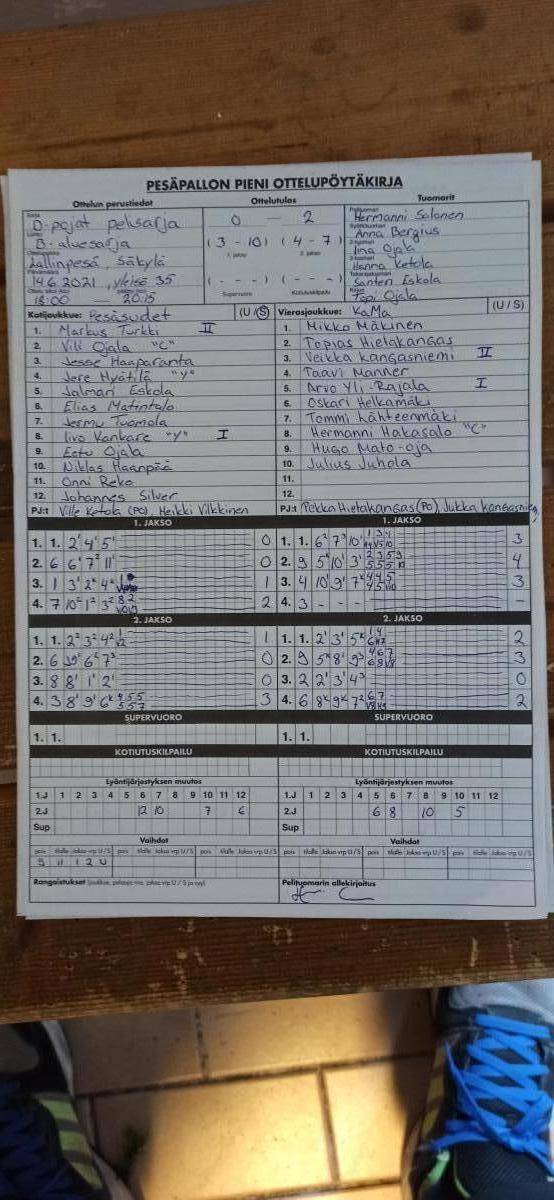 PESÄPALLON PIENI OTTELUPÖYTÄKIRJA
Ottelun perustiedot Ottelutulos Tuomarit
D-pojat pelisarja 0 — 2 Hermanni Salonen
B-aluesarja Anna Bergius
Lallinpesä, Säkylä (3-10) (4-7) Iina Ojala
1. jakso 2. jakso Hanna Ketola
14.6.2021, yleisö 35 (- - -) (- - -) Santeri Eskola
18:00 — 20:15 Supervuoro Kotiutuskilpailu Topi Ojala
Kotijoukkue: Pesäsudet (U/S) Vierasjoukkue: KaMa (U/S)
1. Markus Turkki II 1. Mikko Mäkinen
2. Vili Ojala "C" 2. Topias Hietakangas
3. Jesse Haaparanta 3. Veikka Kangasniemi II
4. Jere Hyötilä "Y" 4. Taavi Manner
5. Jalmari Eskola 5. Arvo Yli-Rajala I
6. Elias Matintalo 6. Oskari Helkamäki
7. Jermu Tuomola 7. Tommi Lähteenmäki
8. Iivo Kankare "Y" I 8. Hermanni Hakasalo "C"
9. Eetu Ojala 9. Hugo Mato-oja
10. Niklas Haanpää 10. Julius Juhola
11. Onni Reko 11.
12. Johannes Silver 12.
PJ:t Ville Ketola (PO), Heikki Vilkkinen PJ:t Pekka Hietakangas (PO), Jukka Kangasniemi
1. JAKSO 1. JAKSO
1. 1. 2' 4' 5' 0 1. 1. 6² 7³ 10' 3
2. 6 6' 7² 11' 0 2. 9 5ᴷ 10' 3' 4
3. 1 3' 2ᴷ 4ᴷ 1 3. 4 10' 9' 7ᴷ 3
4. 7 10² 1² 3² 2 4. 3 - - - -
2. JAKSO 2. JAKSO
1. 1. 2² 3² 4² 1 1. 1. 2' 3' 5ᴷ 2
2. 6 6² 7³ 0 2. 9 5ᴷ 8' 9³ 3
3. 8 8' 1' 2' 0 3. 2 2' 3' 4³ 0
4. 3 8' 9' 6ᴷ 3 4. 6 8ᴷ 9ᴷ 7² 2
SUPERVUORO SUPERVUORO
1. 1. 1. 1.
KOTIUTUSKILPAILU KOTIUTUSKILPAILU
Lyöntijärjestyksen muutos Lyöntijärjestyksen muutos
1.J 1 2 3 4 5 6 7 8 9 10 11 12 1.J 1 2 3 4 5 6 7 8 9 10 11 12
2.J 12 10 7 6 2.J 6 8 10 5
Sup Sup
Vaihdot Vaihdot
pois tilalle Jakso vrp U/S pois tilalle Jakso vrp U/S pois tilalle Jakso vrp U/S pois tilalle Jakso vrp U/S pois tilalle Jakso vrp U/S pois tilalle Jakso vrp U/S
9 11 1 2 U
Rangaistukset (joukkue, pelaaja nro, jakso vrp U / S ja syy) Pelituomarin allekirjoitus